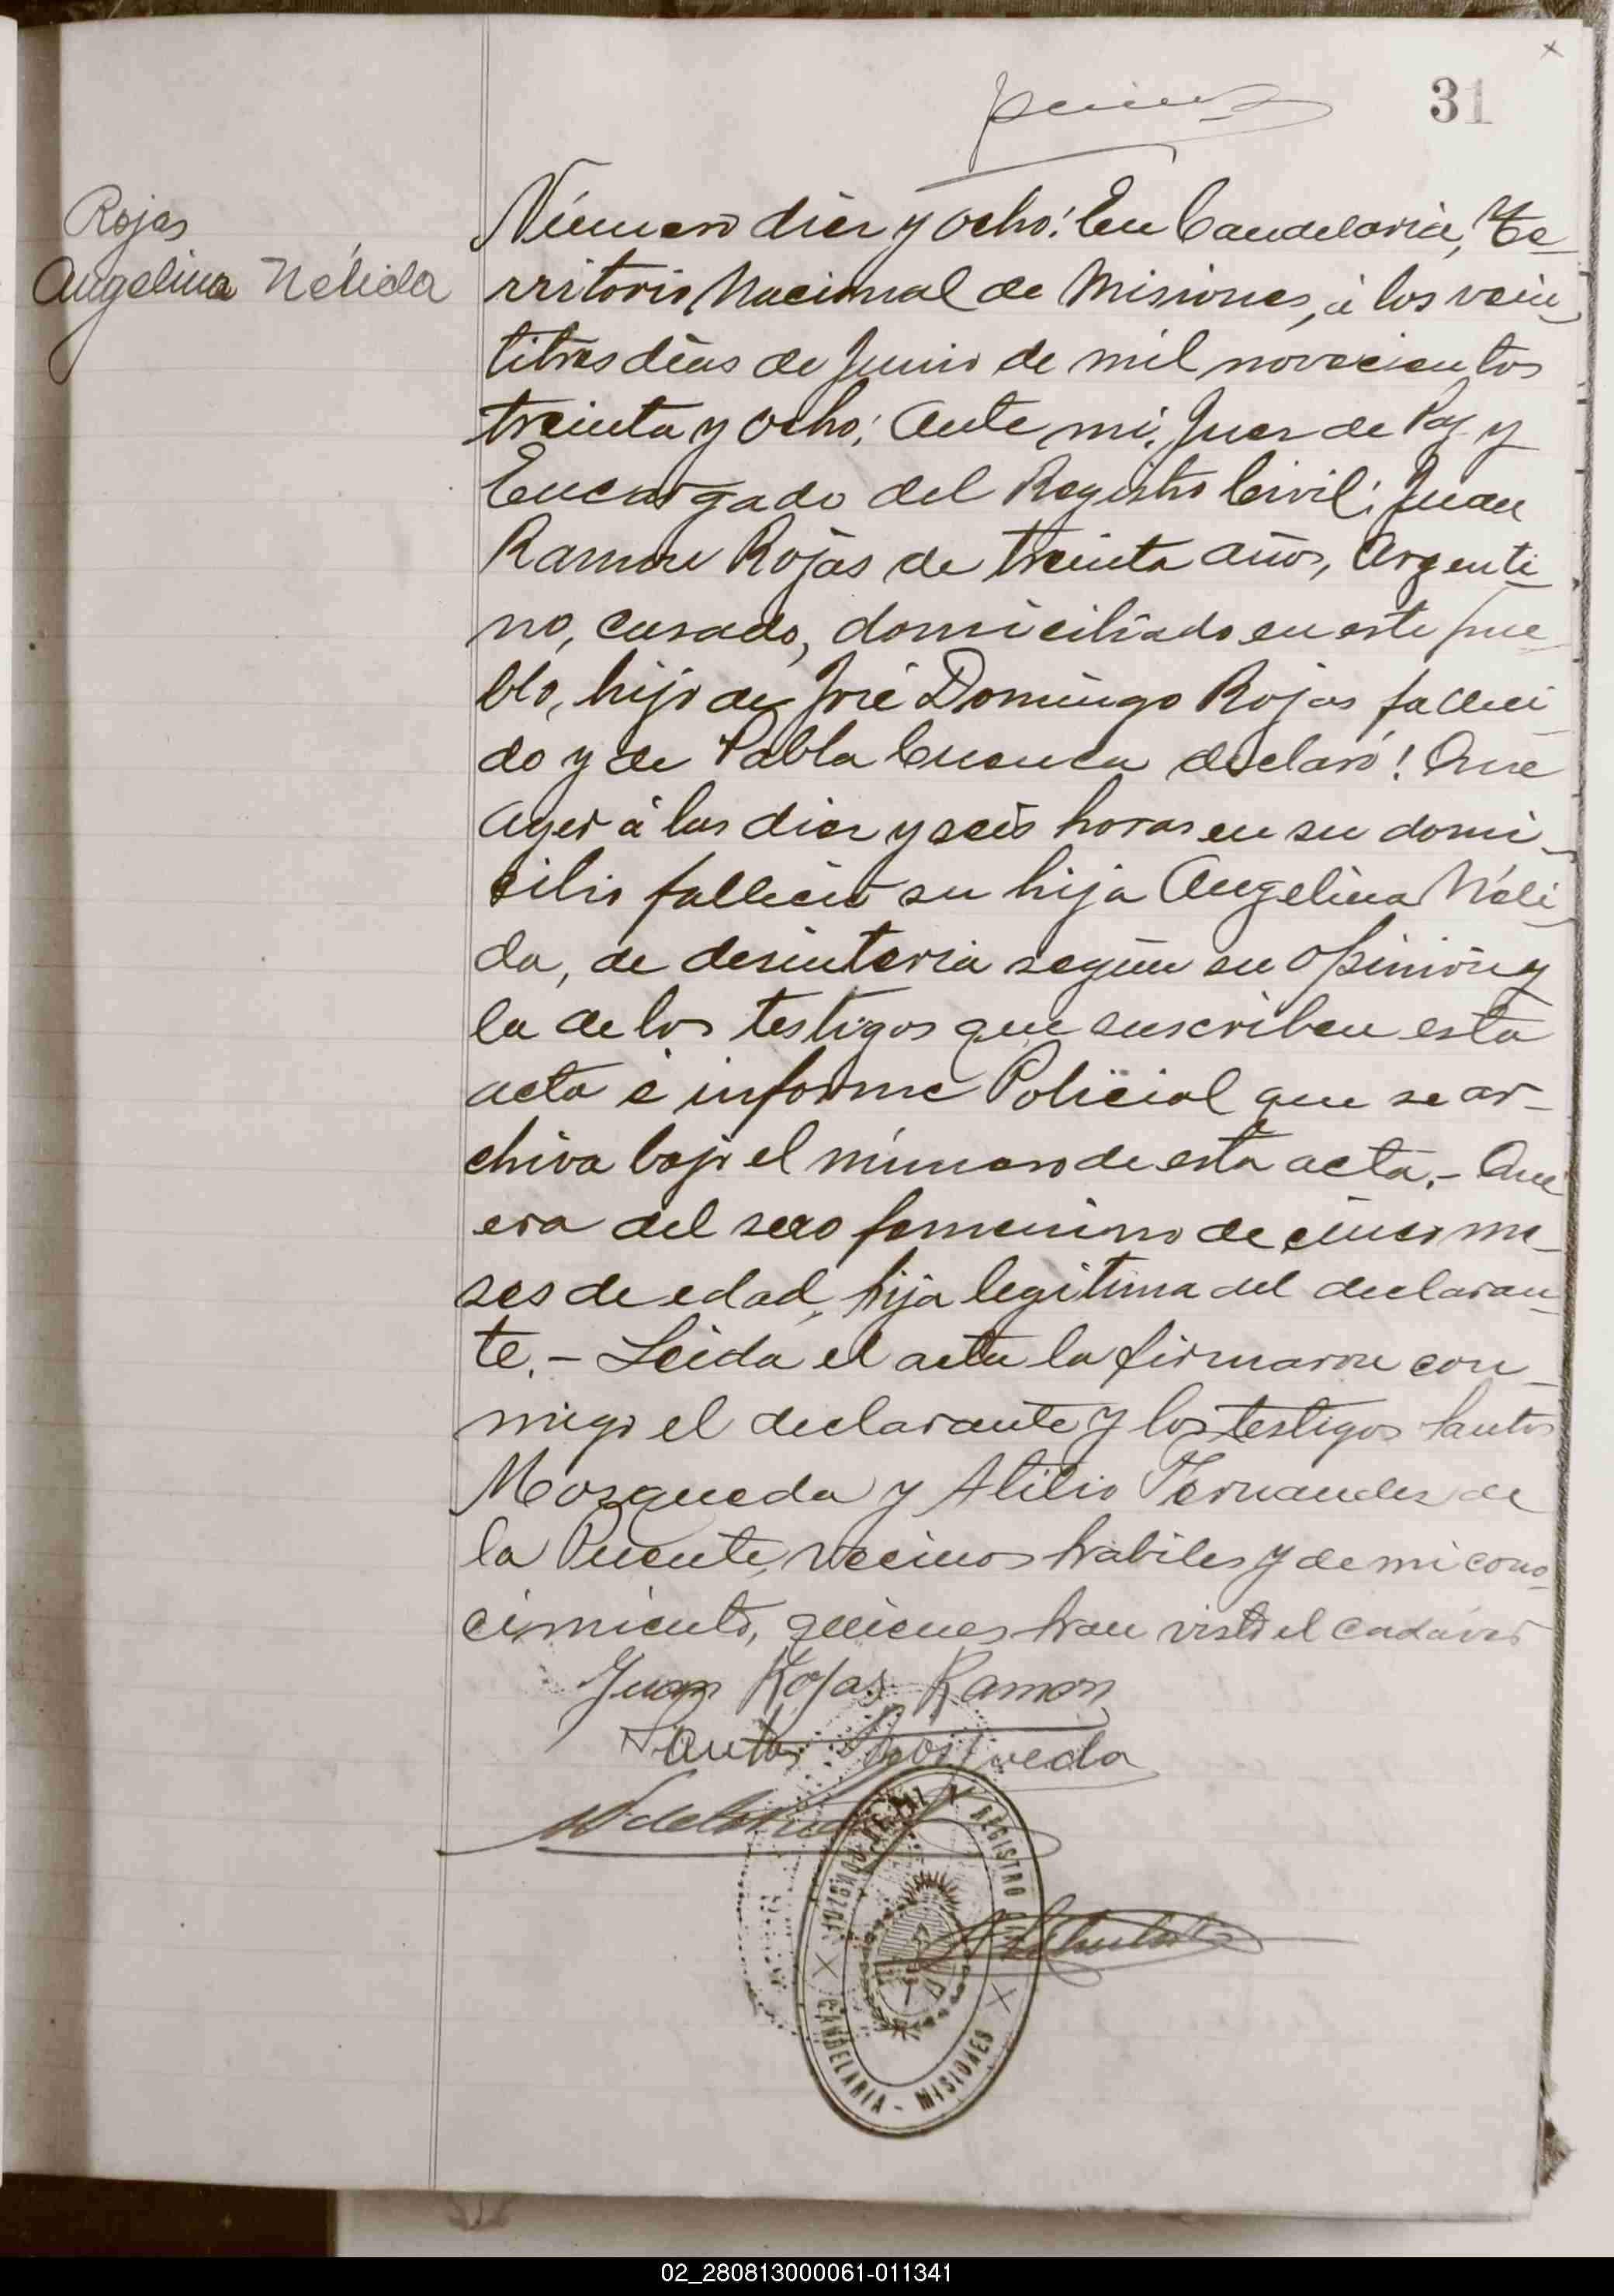 31
Rojas
Angelina Nélida
Número diez y ocho: En Candelaria, Te-
rritorio Nacional de Misiones, á los vein-
titres dias de Junio de mil novecientos
treinta y ocho; Ante mi, Juez de Paz y
Encargado del Registro Civil; Juan
Ramon Rojas de treinta años, Argenti-
no, casado, domiciliado en este pue-
blo, hijo de José Domingo Rojas falleci-
do y de Pabla Cuenca declaró: Que
ayer á las diez y seis horas en su domi-
cilio falleció su hija Angelina Néli-
da, de desinteria según su opinión y
la de los testigos que suscriben esta
acta é informe Policial que se ar-
chiva bajo el número de esta acta.- Que
era del sexo femenino de cinco me-
ses de edad, hija legítima del declaran-
te.- Leida el acta la firmaron con-
migo el declarante y los testigos Santos
Mosqueda y Atilio Fernandez de
la Puente, vecinos habiles y de mi cono-
cimiento, quienes han visto el cadáver
Juan Rojas Ramon
Santos Mosqueda
JUZGADO DE PAZ Y REGISTRO CIVIL
CANDELARIA - MISIONES
02_280813000061-011341